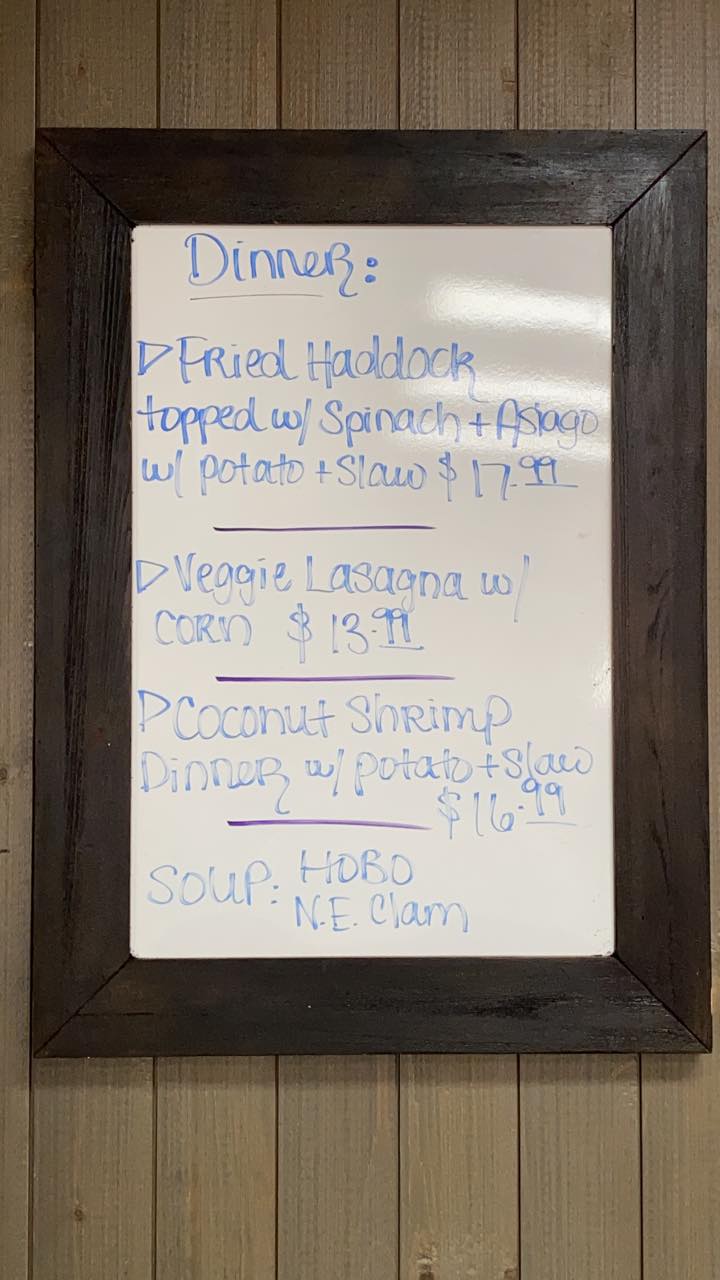 Dinner:
▷ Fried Haddock
topped w/ Spinach + Asiago
w/ potato + Slaw $17.99
▷ Veggie Lasagna w/
CORN $13.99
▷ Coconut Shrimp
Dinner w/ potato + Slaw
$16.99
SOUP: HOBO
N.E. Clam